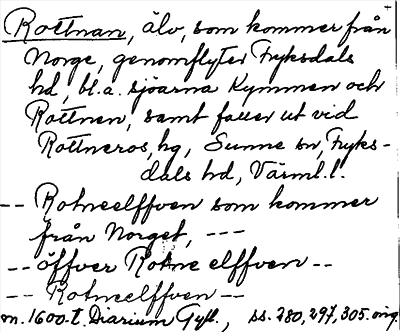 Rottnan, älv, som kommer från
Norge, genomflyter Fryksdals
hd, bl.a. sjöarna Kymmen och
Rottnen, samt faller ut vid
Rottneros, hg, Sunne sn, Fryks-
dals hd, Värml.l.
-- Rotneelffven som kommer
från Norget, ---
-- öffver Rotne elffven --
-- Rotneelffven --
m.1600-t. Diarium Gyll., ss. 280, 297, 305. orig.